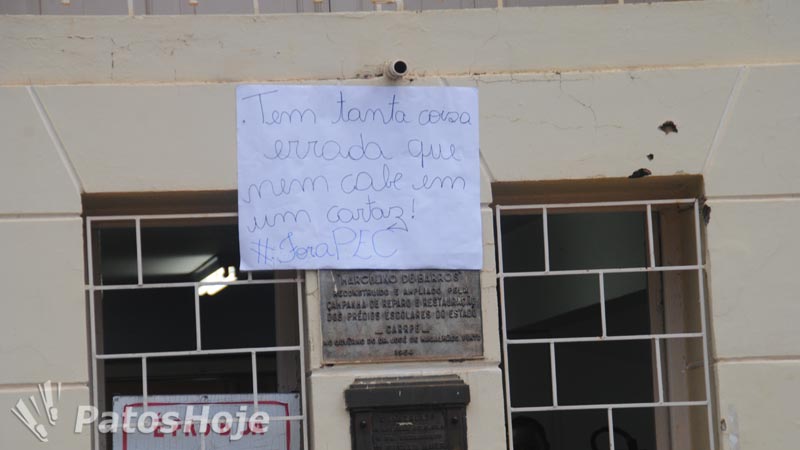 . Tem tanta coisa
errada que
nem cabe em
um cartaz!
#ForaPEC
MARCOLINO DE BARROS
RECONSTRUIDO E AMPLIADO PELA
CAMPANHA DE REPARO E RESTAURAÇÃO
DOS PRÉDIOS ESCOLARES DO ESTADO
CARRPE
NO GOVERNO DO DR. JOSÉ DE MAGALHÃES PINTO
1964
PatosHoje